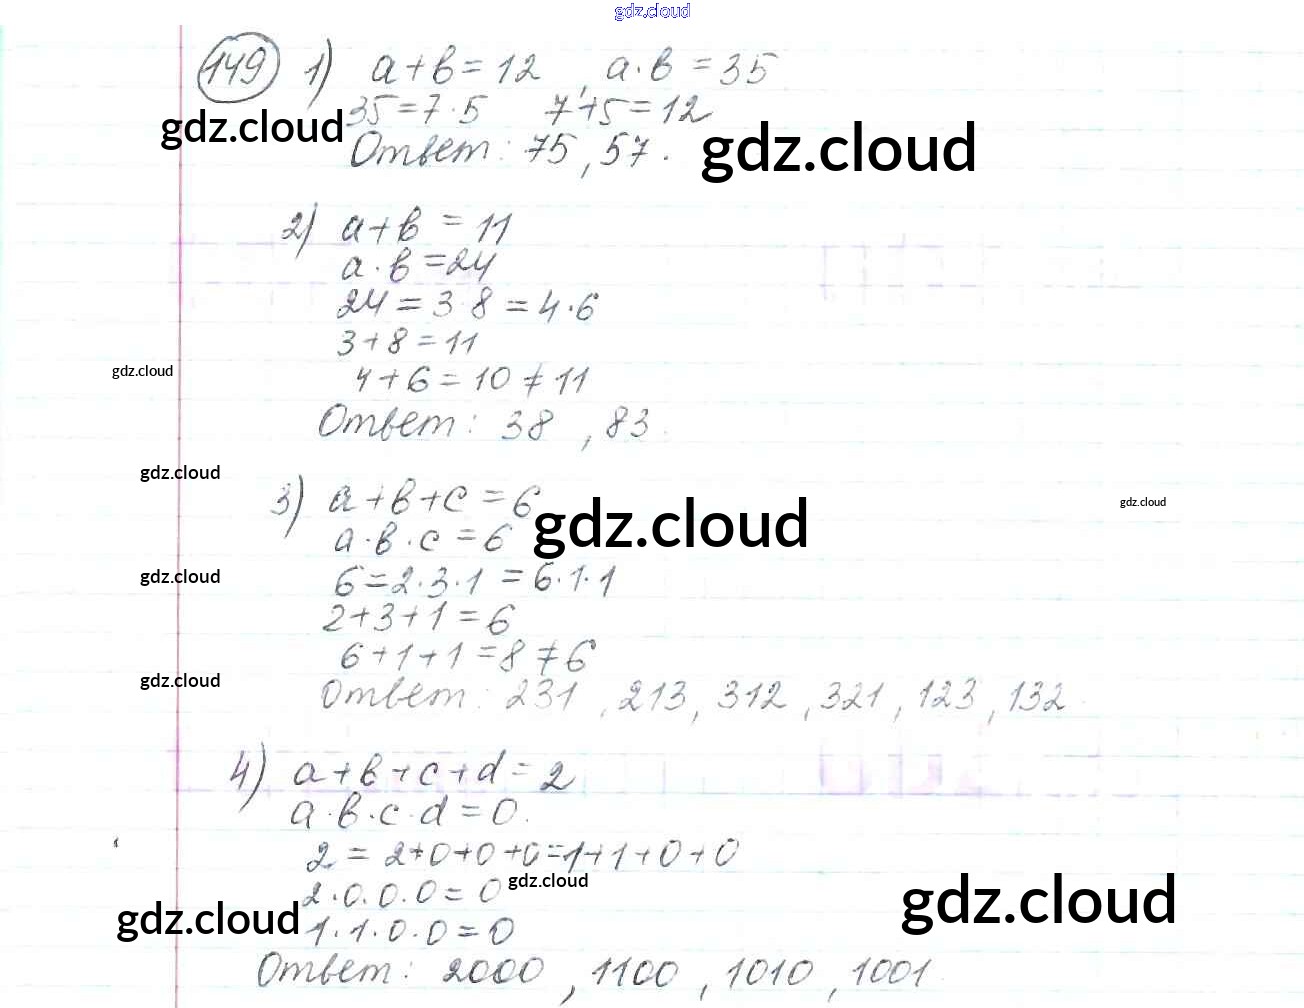 gdz.cloud
149 1) a+b=12, a·b=35
35=7·5 7+5=12
gdz.cloud
Ответ: 75, 57.
gdz.cloud
2) a+b=11
a·b=24
24=3·8=4·6
3+8=11
gdz.cloud
4+6=10≠11
Ответ: 38, 83.
gdz.cloud
3) a+b+c=6
gdz.cloud
gdz.cloud
a·b·c=6
gdz.cloud
6=2·3·1=6·1·1
2+3+1=6
6+1+1=8≠6
gdz.cloud
Ответ: 231, 213, 312, 321, 123, 132.
4) a+b+c+d=2
a·b·c·d=0.
2=2+0+0+0=1+1+0+0
gdz.cloud
2·0·0·0=0
gdz.cloud
gdz.cloud
1·1·0·0=0
Ответ: 2000, 1100, 1010, 1001.